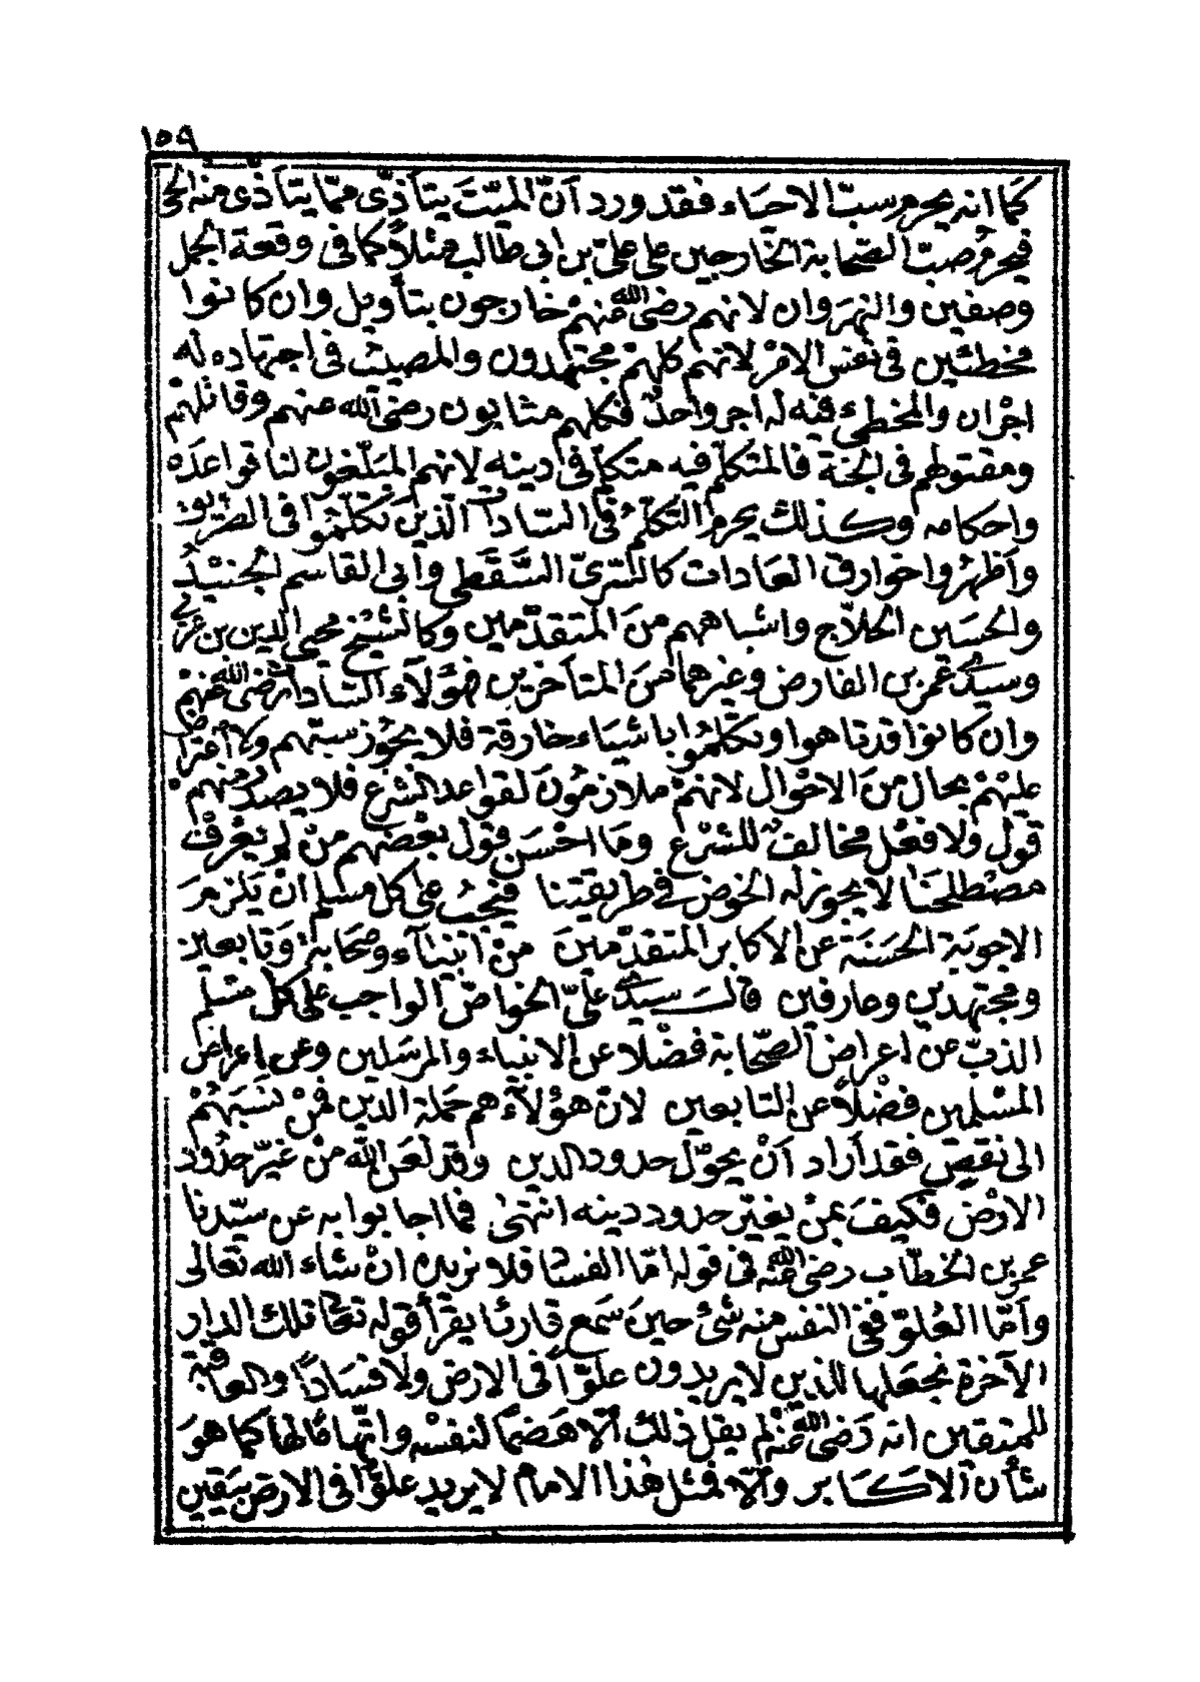 ١٥٩
كما انه يحرم سبّ الاحياء فقد ورد أنّ الميّتَ يتأذّى ممّا يتأذى منه الحى
فيحرم سبّ الصّحابة الخارجين على علىّ بن ابى طالب مثلاً كما فى وقعة الجمل
وصفين والنهروان لانهم رضى الله عنهم خارجون بتأويل وان كانوا
مخطئين فى نفس الامر لانهم كلهم مجتهدون والمصيبُ فى اجتهاده له
اجْران والمخطىء فيه له اجر واحدٌ فكلهم مثابون رضى الله عنهم وقاتلهم
ومقتولهم فى الجنة فالمتكلّم فيه متكلّم فى دينه لانهم المبَلّغون لنا قواعدَه
واحكامه وكذلك يحرم التكلّمُ فى السّادات الّذينَ تكلّموا فى الطريق
وأظهرُوا خوارق العَادات كالسّرىّ السَّقَطى وأبى القاسم الجنيْدُ
والحسَين الحلاّج واشباههم منَ المتقدّمين وكالشيْخ محيى الدين بن عربى
وسيدى عمر بن الفارض وغيرهما منَ المتأخرين فهؤلآء السّادات رضى الله عنهم
وان كانوا قد تاهوا وتكلّموا باشياء خارقة فلا يجُوز سبّهم ولا اعتراض
عليْهمْ بحال منَ الاحْوال لانهمْ ملازمُونَ لقواعد الشرع فلا يصدر منهم
قول ولا فعْل مخالفٌ للشرْع وما احْسَن قول بعْضهم منْ لم يعْرفْ
مصْطلحَنا لا يجوز له الخوض فى طريقتنا فيجبُ على كل مسلم انْ يَلزمَ
الاجوبَة الحَسَنَة عن الاكابر المتقدّمينَ منْ انبيآء وصحَابة وَتابعين
ومجتهدين وعارفين قالَ سيدى علىّ الخواصُ الواجب على كلّ مسْلم
الذبّ عن اعراض الصّحابة فضْلا عن الانبياء والمرسَلين وعن اعراض
المسْلمين فضْلاً عن التابعين لانّ هؤلآء هم حَملة الدين فمَنْ نسَبهُمْ
الى نقصٍ فقد أراد أنْ يحَوّلَ حدود الدين وقد لعَن الله منْ غيّر حدُود
الارْض فكيفَ بمنْ يغيّر حدود دينه انتهىٰ فما اجابوا به عن سيّدنا
عمر بن الخطّاب رضى الله عنه فى قوله امّا الفساد فلا نريده انْ شاء الله تعالى
وأمّا العُلوّ ففى النفس منه شئ حينَ سَمع قارئا يقرأ قوله تعالى تلك الدار
الآخرة نجعَلها للذين لا يريدون علوّاً فى الارض ولا فسَاداً والعاقبة
للمتقين انه رَضى الله عنه لم يقل ذلك الا هَضمًا لنفسْه واتّهامًا لها كما هوَ
شأن الاكَابر والّا فمثل هذا الامام لا يريد علوّا فى الارض بيَقين